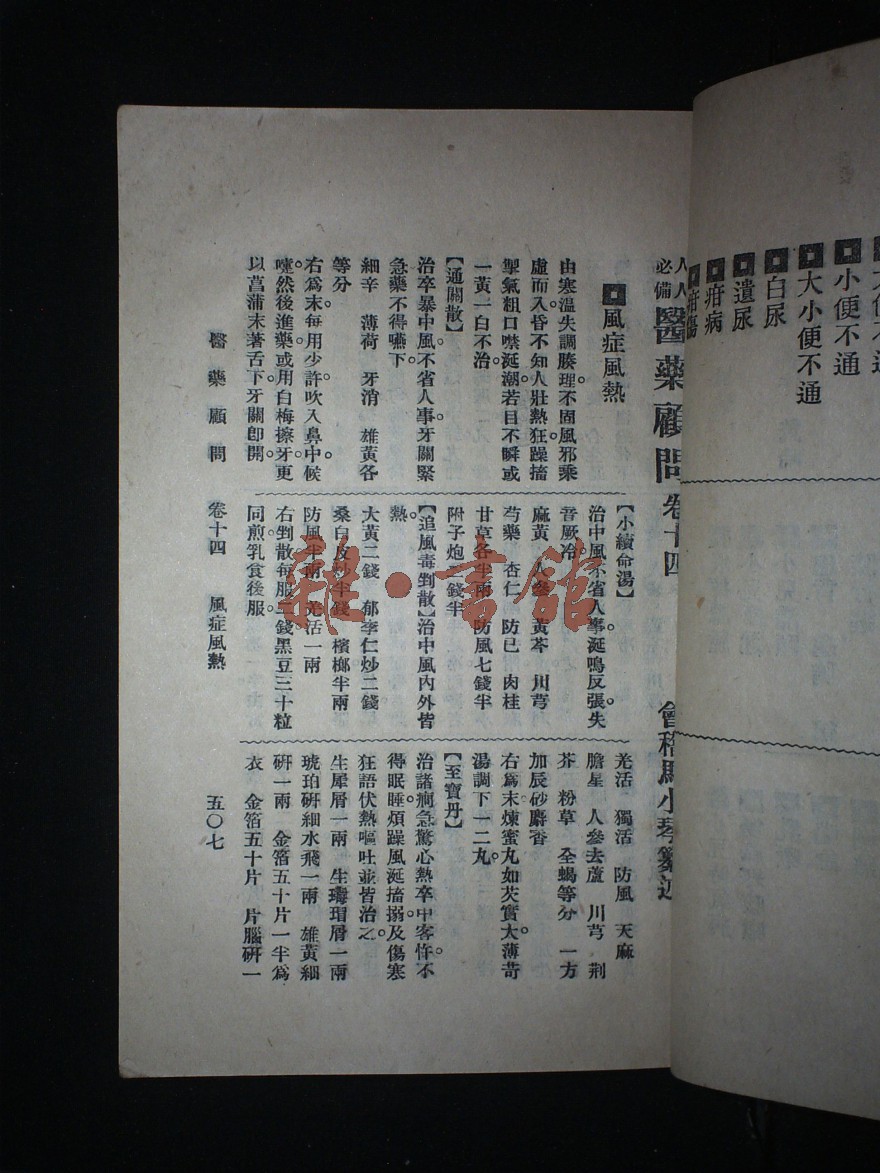 大小便不通
小便不通
大小便不通
白尿
遺尿
疳病
疳傷
人人必備 醫藥顧問 卷十四 會稽馬小琴纂述
風症風熱
由寒溫失調腠理不固風邪乘
虛而入昏不知人壯熱狂躁搐
掣氣粗口噤涎潮若目不瞬或
一黃一白不治
【通關散】
治卒暴中風不省人事牙關緊
急藥不得嚥下
細辛 薄荷 牙消 雄黃各
等分
右爲末每用少許吹入鼻中候
嚏然後進藥或用白梅擦牙更
以菖蒲末著舌下牙關卽開
【小續命湯】
治中風不省人事涎鳴反張失
音厥冷
麻黃 人參 黃芩 川芎
芍藥 杏仁 防已 肉桂
甘草各半兩 防風七錢半
附子炮二錢半
【追風毒剉散】治中風內外皆
熱
大黃二錢 郁李仁炒二錢
桑白皮炒半錢 檳榔半兩
防風半兩 羌活一兩
右剉散每服二錢黑豆三十粒
同煎乳食後服
羌活 獨活 防風 天麻
膽星 人參去蘆 川芎 荆
芥 粉草 全蝎等分 一方
加辰砂麝香
右爲末煉蜜丸如芡實大薄荷
湯調下一二丸
【至寶丹】
治諸癇急驚心熱卒中客忤不
得眠睡煩躁風涎搐搦及傷寒
狂語伏熱嘔吐並皆治之
生犀屑一兩 生瑇瑁屑一兩
琥珀研細水飛一兩 雄黃細
研一兩 金箔五十片一半爲
衣 金箔五十片 片腦研一
醫藥顧問 卷十四 風症風熱 五〇七
雜·書館